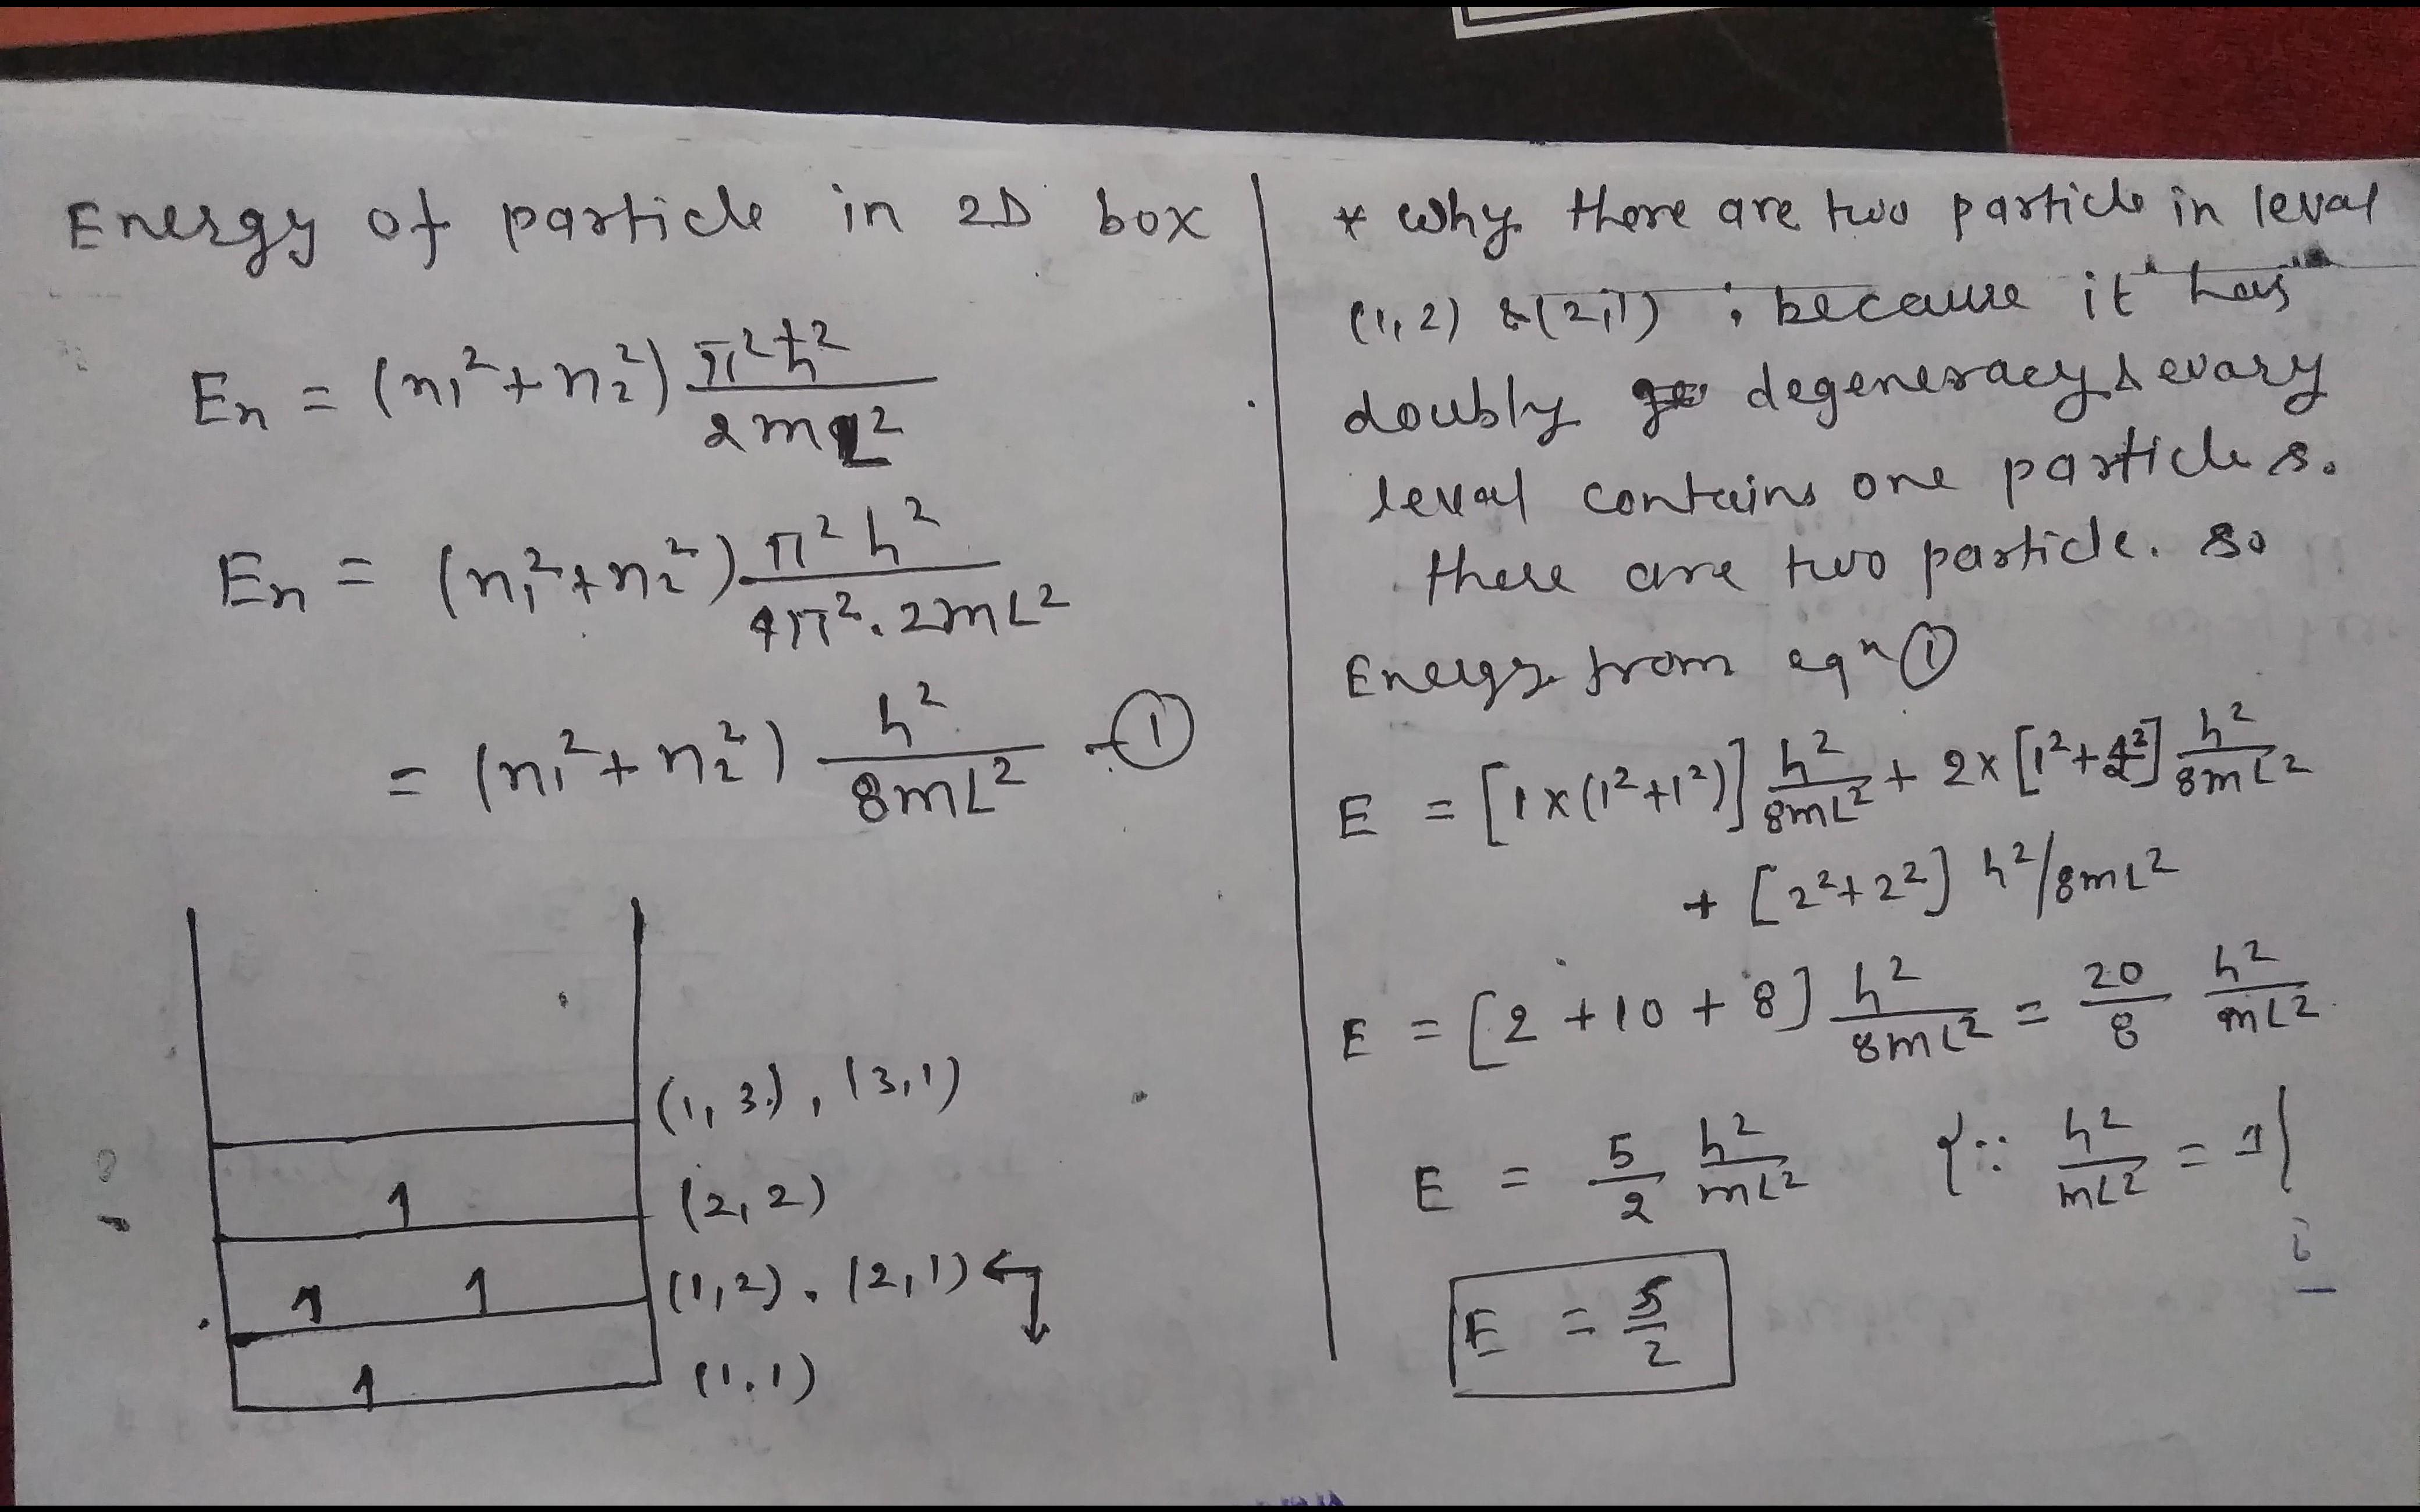 Energy of particle in 2D box
En = (n₁² + n₂²) π²ħ² / 2mL²
En = (n₁² + n₂²) π²h² / 4π². 2mL²
= (n₁² + n₂²) h² / 8mL² - ①
(1, 3), (3,1)
1 (2, 2)
1 1 (1,2), (2,1)
1 (1,1)
* Why there are two particle in leval
(1, 2) & (2,1) ; because it has
doubly degeneracy & evary
leval contains one particles.
there are two particle. so
Energy from eqⁿ ①
E = [1 x (1² + 1²)] h²/8mL² + 2x [1² + 2²] h²/8mL²
+ [2² + 2²] h²/8mL²
E = [2 + 10 + 8] h²/8mL² = 20/8 h²/mL²
E = 5/2 h²/mL² {∵ h²/mL² = 1}
E = 5/2